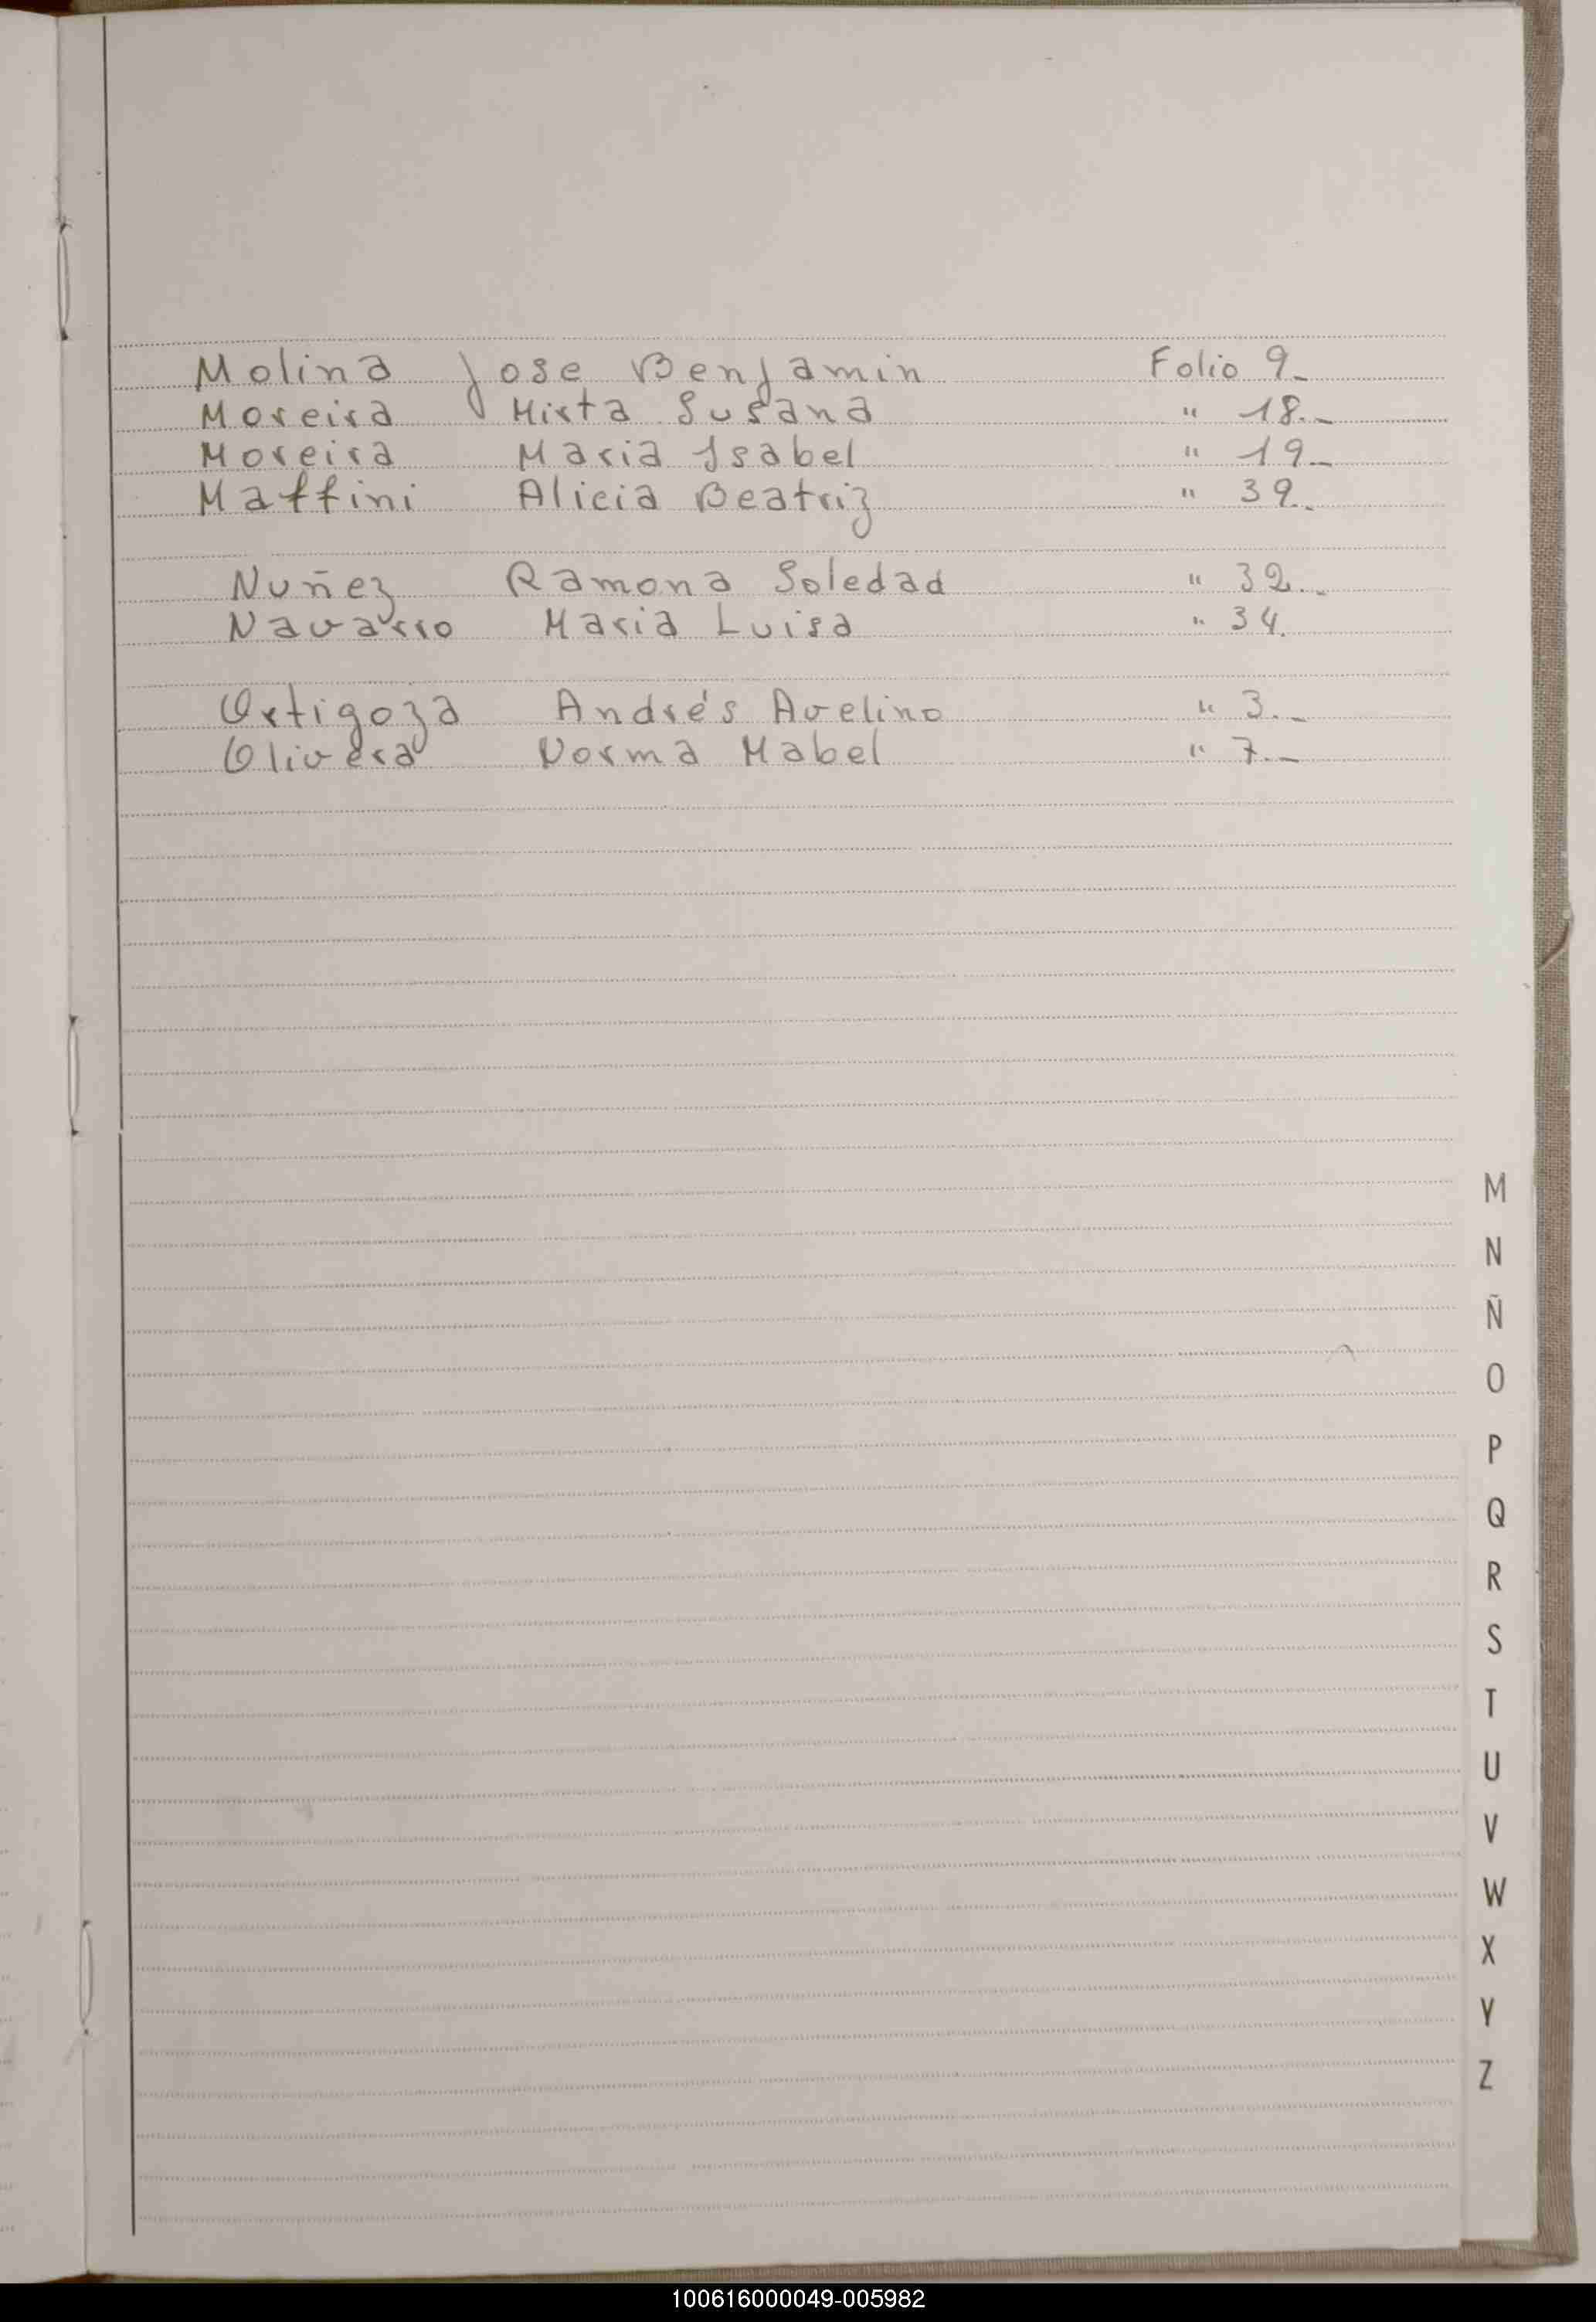 Molina Jose Benjamin Folio 9_
Moreira Mirta Susana " 18._
Moreira Maria Isabel " 19_
Maffini Alicia Beatriz " 39.
Nuñez Ramona Soledad " 32._
Navarro Maria Luisa " 34.
Ortigoza Andrés Avelino " 3._
Olivera Norma Mabel " 7._
M
N
Ñ
O
P
Q
R
S
T
U
V
W
X
Y
Z
100616000049-005982